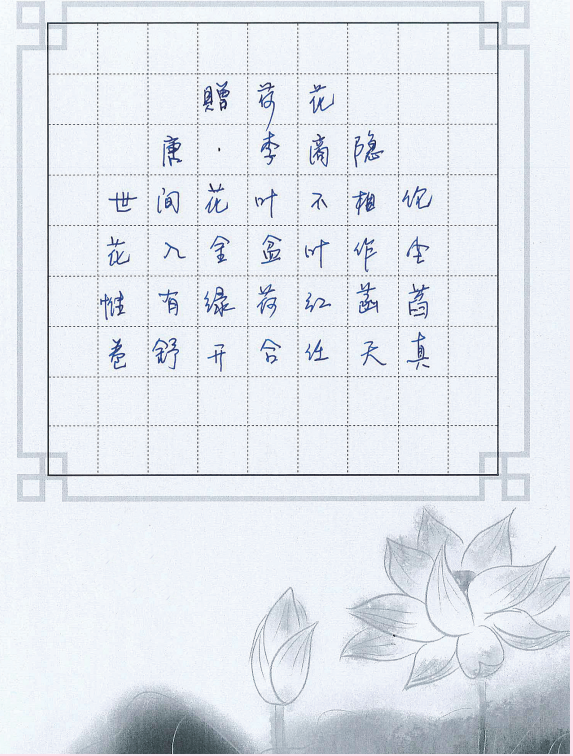 贈荷花
唐·李商隐
世间花叶不相伦
花入金盆叶作尘
惟有绿荷红菡萏
卷舒开合任天真